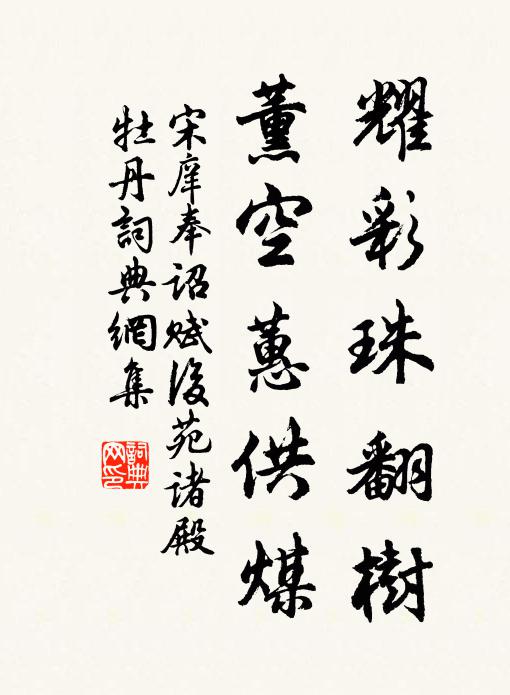 耀彩珠翻樹
薰空蕙供煤
宋庠奉詔賦後苑諸殿
牡丹詞典網集
詞典網印